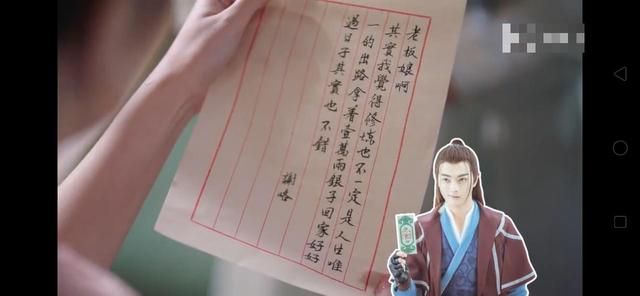 老板娘啊
其實我覺得修炼也不一定是人生唯
一的出路拿着壹萬兩銀子回家好好
過日子其實也不錯
謝咯